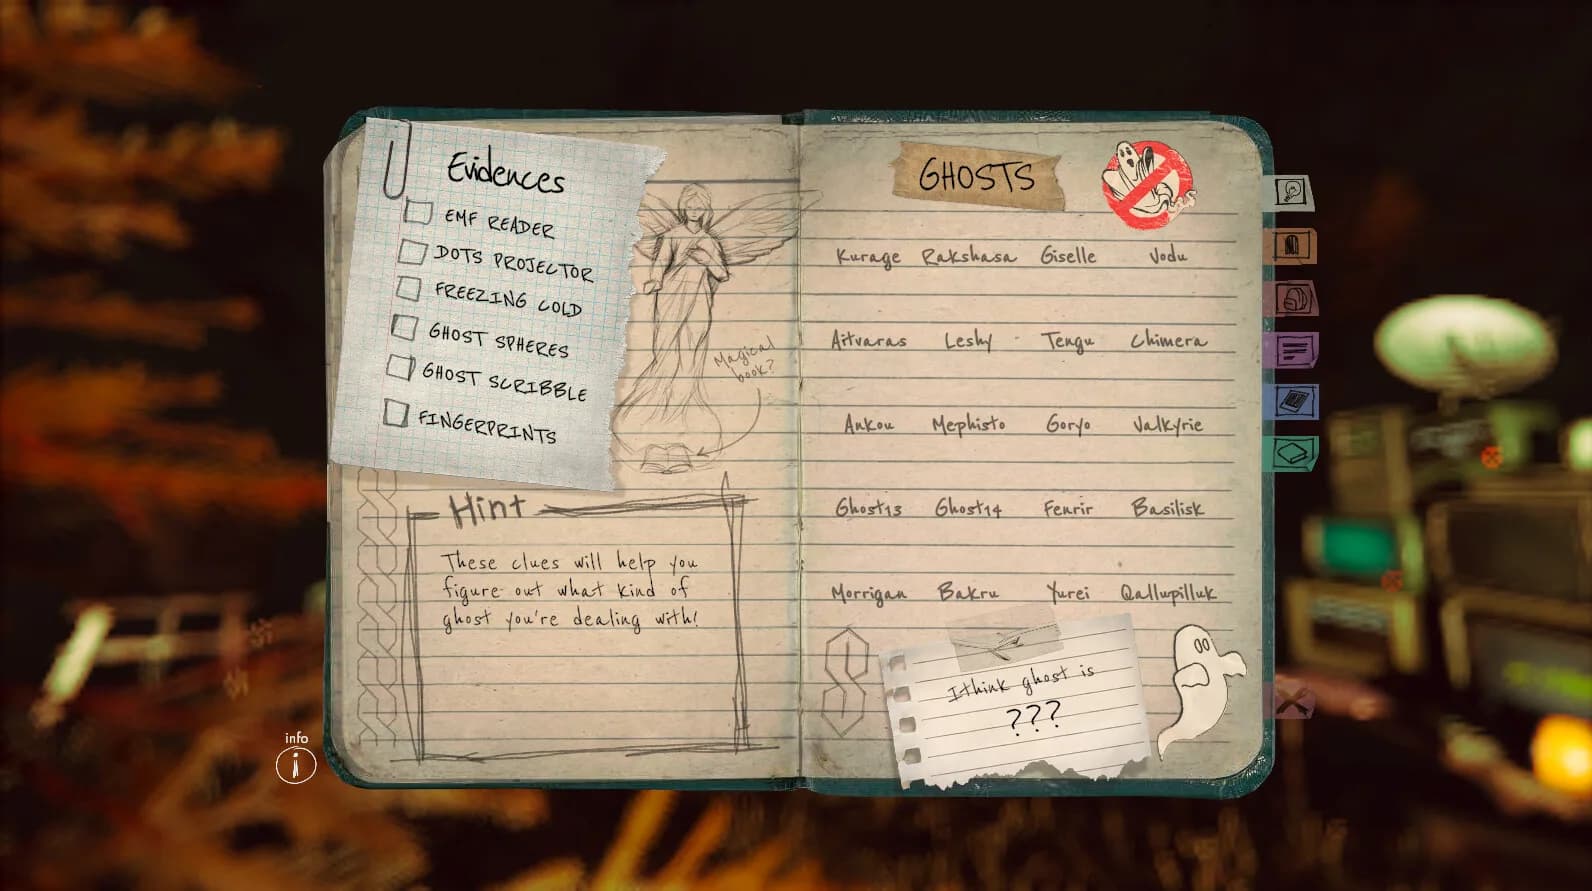 Evidences
EMF READER
DOTS PROJECTOR
FREEZING COLD
GHOST SPHERES
GHOST SCRIBBLE
FINGERPRINTS
Magical
book?
Hint
These clues will help you
figure out what kind of
ghost you're dealing with!
info
i
GHOSTS
Kurage Rakshasa Giselle Vodu
Aitvaras Leshy Tengu Chimera
Ankou Mephisto Goryo Valkyrie
Ghost13 Ghost14 Fenrir Basilisk
Morrigan Bakru Yurei Qallupilluk
I think ghost is
???